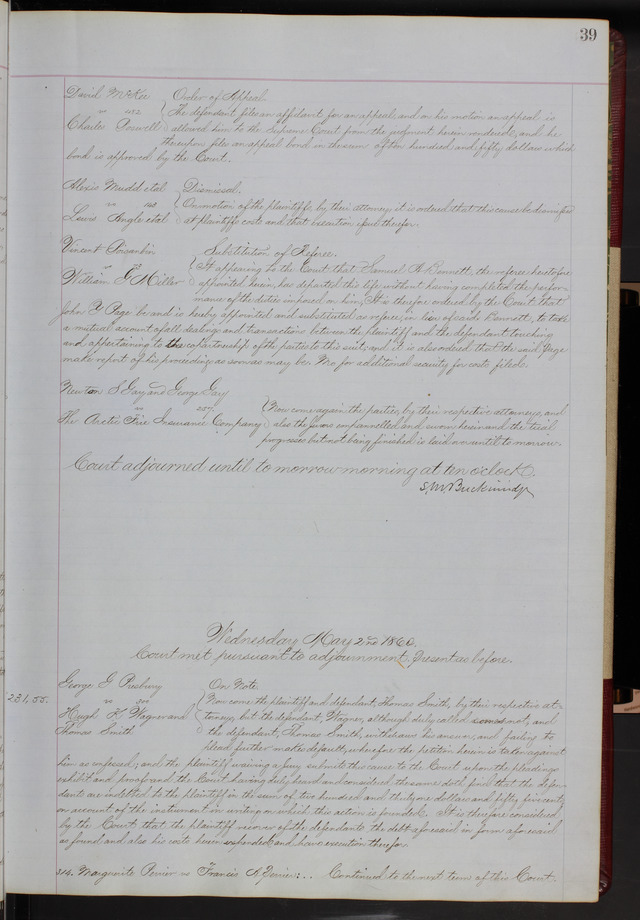 39
David McKee Order of Appeal.
vs 472 The defendant files an affidavit for an appeal, and on his motion an appeal is
Charles Powell allowed him to the Supreme Court from the judgment herein rendered, and he
thereupon files an appeal bond in the sum of two hundred and fifty dollars which
bond is approved by the Court.
Alexis Mudd et al Dismissal.
vs On motion of the plaintiffs, by their attorney it is ordered that this cause be dismissed
Lewis Angle et al at plaintiffs costs and that execution issue therefor.
Vincent Substitution of Referee.
vs It appearing to the Court that Samuel A. Bennett, the referee heretofore
William F. Miller appointed herein, has departed this life without having completed the perfor-
mance of the duties imposed on him; It is therefore ordered by the Court that
John Y Page be and is hereby appointed and substituted as referee, in lieu of said Bennett, to take
a mutual account of all dealings and transactions between the plaintiff and the defendant touching
and appertaining to the copartnership of the parties to this suit; and it is also ordered that the said Page
make report of his proceedings as soon as may be. Mo for additional security for costs filed.
Newton S Gay and George Gay
vs 257. Now come again the parties, by their respective attorneys, and
The Arctic Fire Insurance Company also the jurors empannelled and sworn herein and the trial
progresses but not being finished is laid over until to morrow.
Court adjourned until to morrow morning at ten oclock.
S. M. Breckinridge
Wednesday May 2nd 1860.
Court met pursuant to adjournment, Present as before.
George G Presbury On Note.
231,55. vs Now come the plaintiff and defendant, Thomas Smith, by their respective at-
Hugh K Wagner and torneys, but the defendant, Wagner, although duly called comes not, and
Thomas Smith the defendant, Thomas Smith, withdraws his answer, and failing to
plead further makes default; wherefore the petition herein is taken against
him as confessed; and the plaintiff waiving a jury submits this cause to the Court upon the pleadings
exhibit and proof and the Court having duly heard and considered the same doth find that the defen-
dants are indebted to the plaintiff in the sum of two hundred and thirty one dollars and fifty five cents,
on account of the instrument in writing on which this action is founded. It is therefore considered
by the Court that the plaintiff recover of the defendants the debt aforesaid in form aforesaid
as found and also his costs herein expended and have execution therefor.
314. Marguerite Perrier vs Francis A Perrier:.. Continued to the next term of this Court.